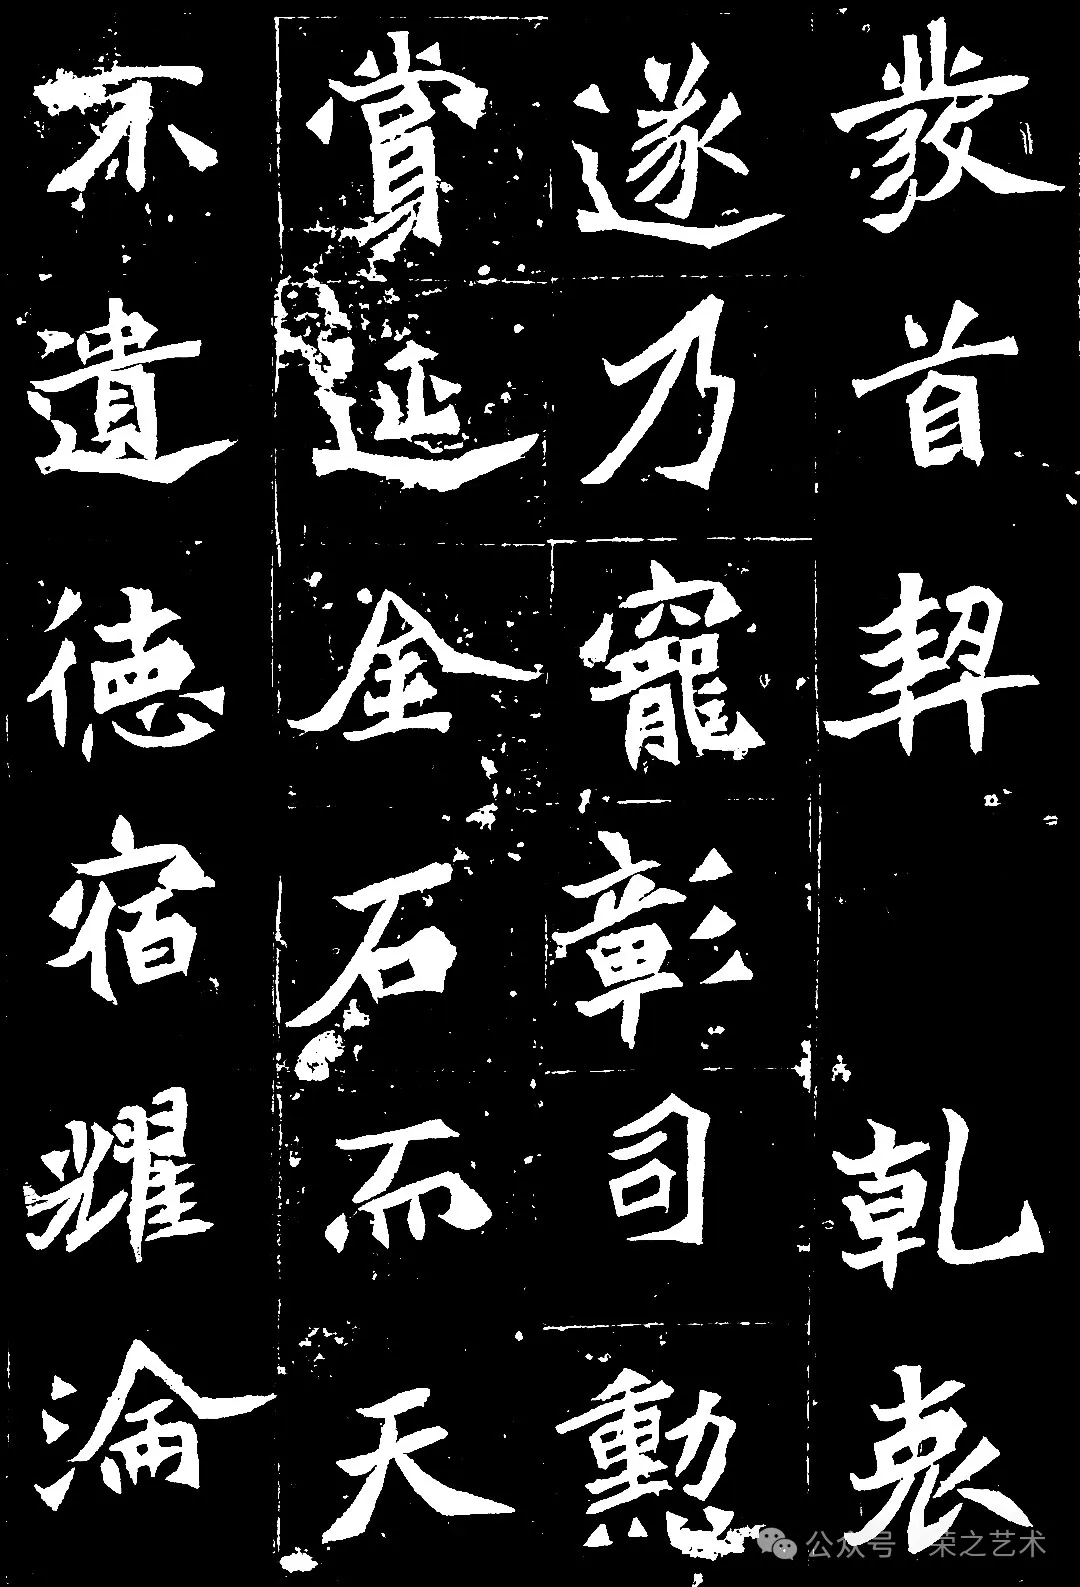 發首契乾衷
遂乃寵彰司勳
賞延金石而天
不遺德宿耀淪
公众号·荣之艺术